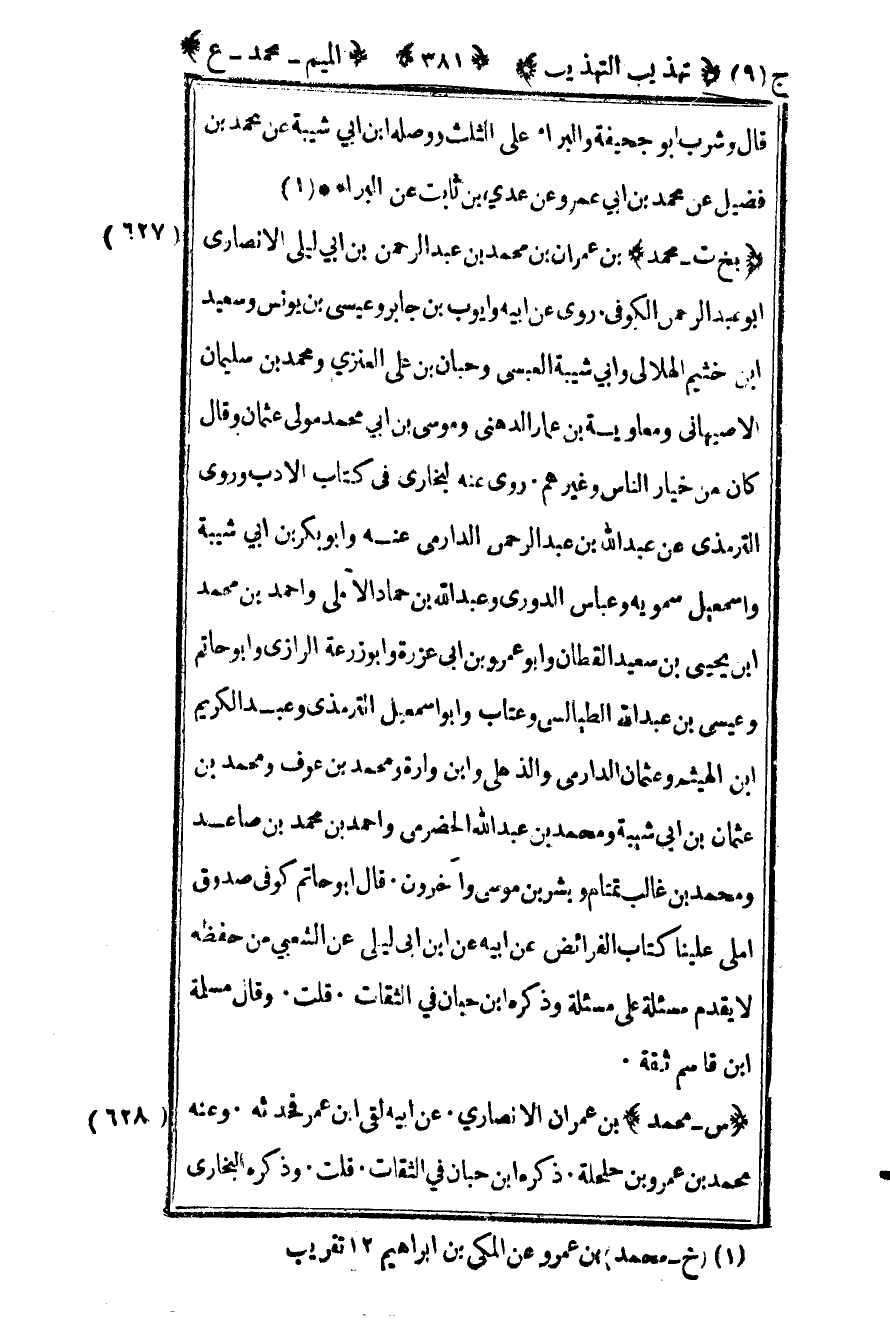 ج (٩) ﴿ تهذيب التهذيب ﴾ ﴿ ٣٨١ ﴾ ﴿ الميم ـ محمد ـ ع ﴾
قال وشرب ابو جحيفة والبراء على الثلث ووصله ابن ابي شيبة عن محمد بن
فضيل عن محمد بن ابي عمرو عن عدي بن ثابت عن البراء * (١)
﴿ بخ ت ـ محمد ﴾ بن عمران بن محمد بن عبد الرحمن بن ابي ليلى الانصارى (٦٢٧)
ابو عبد الرحمن الكوفى . روى عن ابيه وايوب بن جابر وعيسى بن يونس وسعيد
ابن خثيم الهلالى وابي شيبة العبسى وحبان بن على العنزي ومحمد بن سليمان
الاصبهانى ومعاويـة بن عمار الدهنى وموسى بن ابي محمد مولى عثمان وقال
كان من خيار الناس وغيرهم . روى عنه لبخارى فى كتاب الادب وروى
الترمذى عن عبد الله بن عبد الرحمن الدارمى عنـه وابو بكر بن ابي شيبة
واسمعيل سمويه وعباس الدورى وعبد الله بن حماد الآملى واحمد بن محمد
ابن يحيى بن سعيد القطان وابو عمرو بن ابى عزرة وابو زرعة الرازى وابو حاتم
وعيسى بن عبد الله الطيالسى وعتاب وابو اسمعيل الترمذى وعبـد الكريم
ابن الهيثم وعثمان الدارمى والذهلى وابن وارة ومحمد بن عوف ومحمد بن
عثمان بن ابي شيبة ومحمد بن عبد الله الحضرمى واحمد بن محمد بن صاعـد
ومحمد بن غالب تمتام وبشر بن موسى وآخرون . قال ابو حاتم كوفى صدوق
املى علينا كتاب الفرائض عن ابيه عن ابن ابى ليلى عن الشعبي من حفظه
لا يقدم مسئلة على مسئلة وذكره ابن حبان في الثقات . قلت . وقال مسلمة
ابن قاسم ثقة .
﴿ س ـ محمد ﴾ بن عمران الانصاري . عن ابيه لقى ابن عمر فحدثه . وعنه (٦٢٨)
محمد بن عمرو بن حلحلة . ذكره ابن حبان في الثقات . قلت . وذكره البخارى
(١) (خ ـ محمد) بن عمرو عن المكى بن ابراهيم ١٢ تقريب